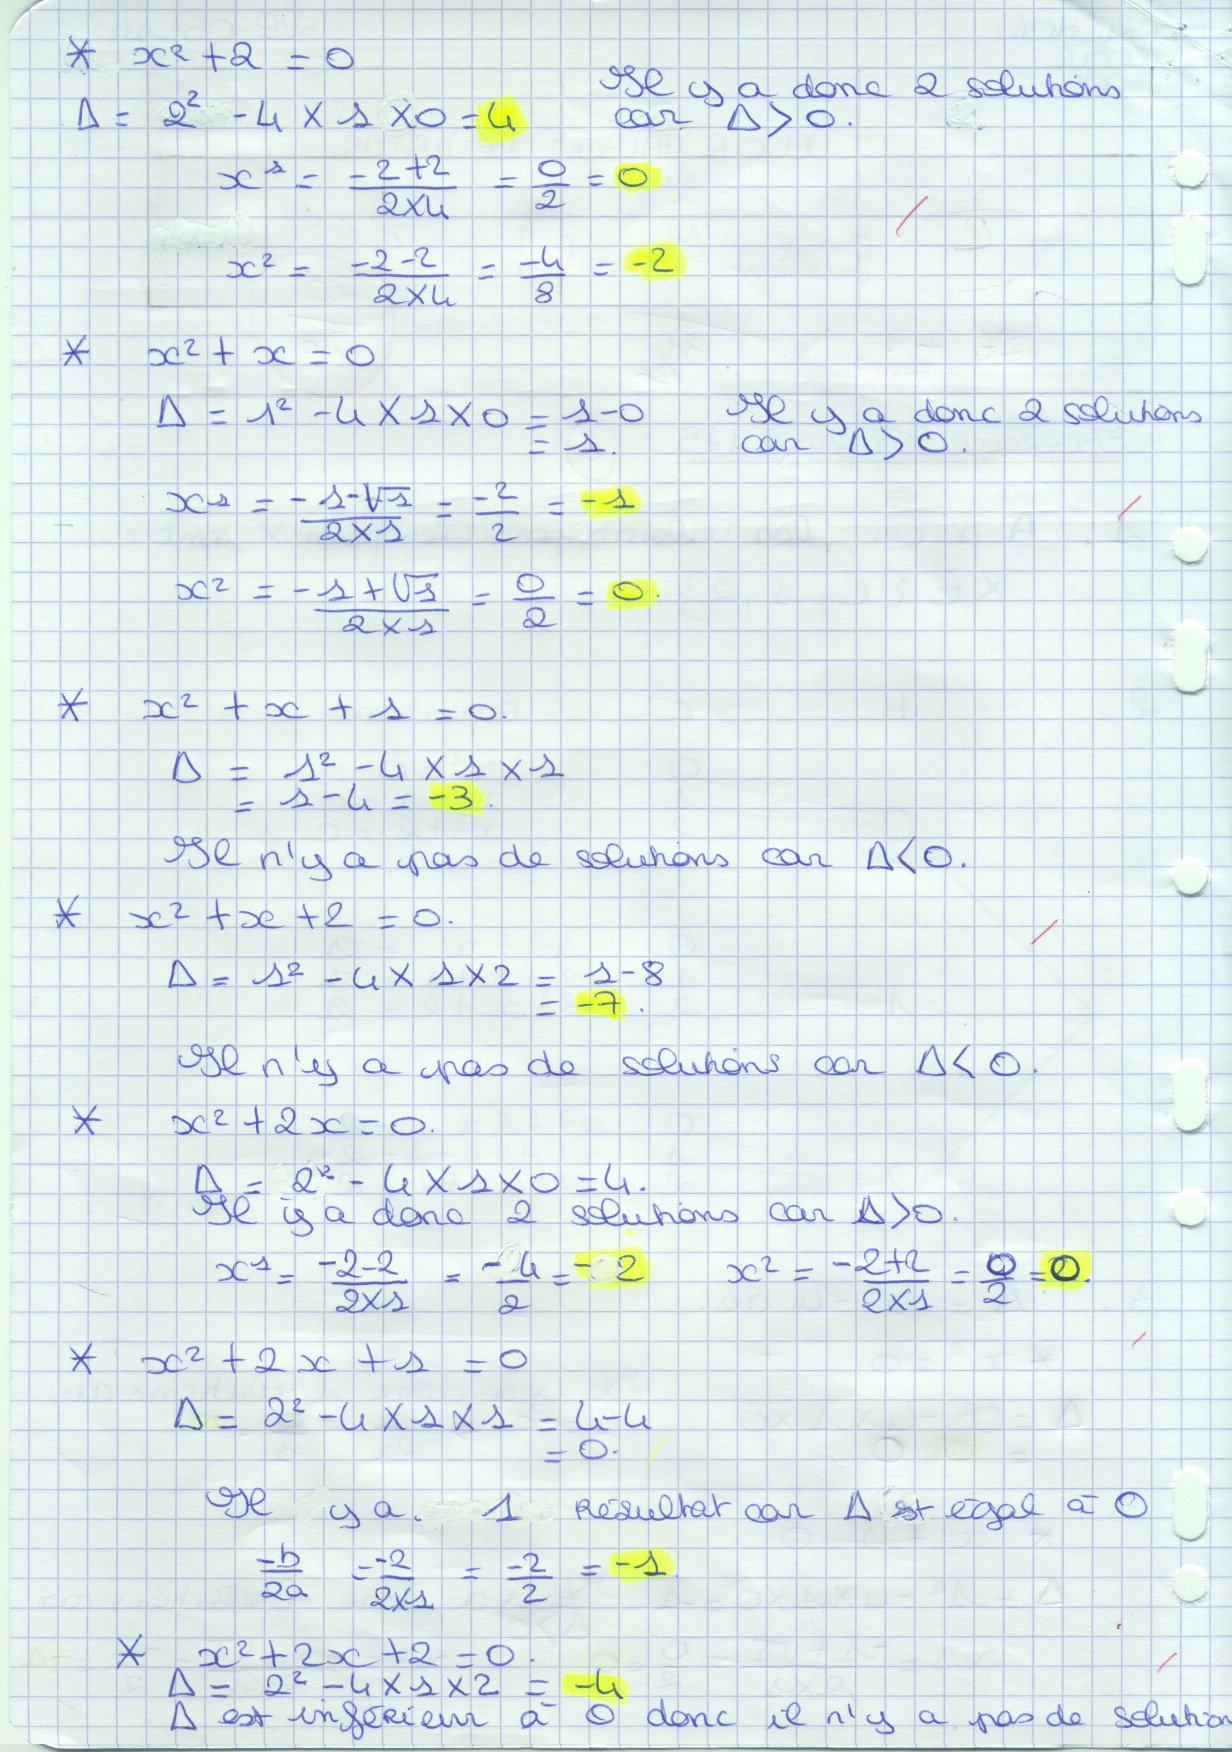 * x² + 2 = 0
Il y a donc 2 solutions
Δ = 2² - 4 × 1 × 0 = 4 car Δ > 0.
x¹ = (-2+2)/(2×4) = 0/2 = 0
x² = (-2-2)/(2×4) = -4/8 = -2
* x² + x = 0
Δ = 1² - 4 × 1 × 0 = 1-0 Il y a donc 2 solutions
= 1. car Δ > 0.
x¹ = -(1-√1)/(2×1) = -2/2 = -1
x² = -(1+√1)/(2×1) = 0/2 = 0.
* x² + x + 1 = 0.
Δ = 1² - 4 × 1 × 1
= 1-4 = -3.
Il n'y a pas de solutions car Δ < 0.
* x² + x + 2 = 0.
Δ = 1² - 4 × 1 × 2 = 1-8
= -7.
Il n'y a pas de solutions car Δ < 0.
* x² + 2x = 0.
Δ = 2² - 4 × 1 × 0 = 4.
Il y a donc 2 solutions car Δ > 0.
x¹ = (-2-2)/(2×1) = -4/2 = -2 x² = (-2+2)/(2×1) = 0/2 = 0.
* x² + 2x + 1 = 0
Δ = 2² - 4 × 1 × 1 = 4-4
= 0.
Il y a. 1 résultat car Δ est égal à 0
-b/2a = -2/(2×1) = -2/2 = -1.
* x² + 2x + 2 = 0.
Δ = 2² - 4 × 1 × 2 = -4
Δ est inférieur à 0 donc il n'y a pas de solution